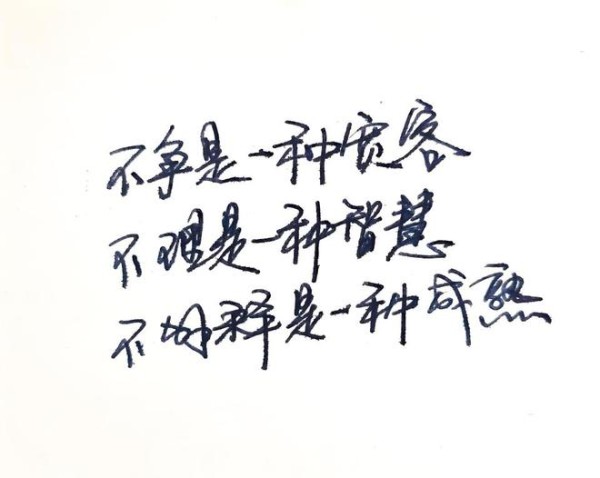 不争是一种宽容
不理是一种智慧
不解释是一种成熟